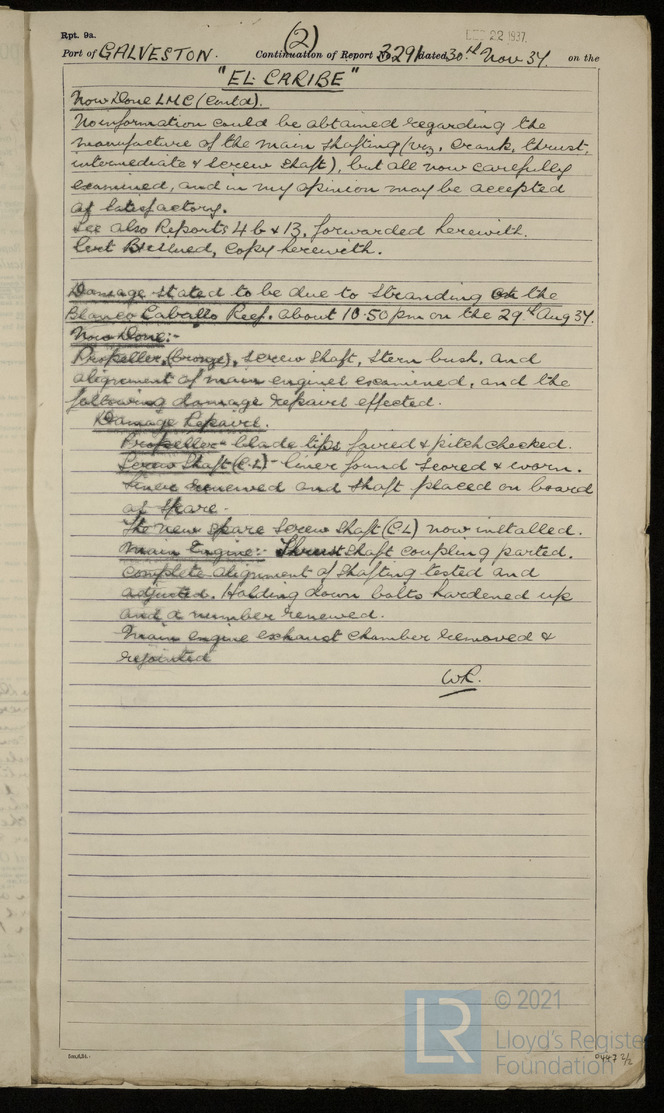 Rpt. 9a.
(2)
DEC 22 1937
Port of GALVESTON. Continuation of Report No. 3291 dated 30th Nov 37. on the
"EL CARIBE"
Now Done LMC (Contd).
No information could be obtained regarding the
manufacture of the main shafting (viz, crank, thrust,
intermediate & screw shaft), but all now carefully
examined, and in my opinion may be accepted
as satisfactory.
See also Reports 4b & 13, forwarded herewith.
Cert issued, copy herewith.
Damage stated to be due to stranding on the
Blanco Caballo Reef. about 10.50 pm on the 29th Aug 37.
Now Done:-
Propeller (bronze), screw shaft, stern bush, and
alignment of main engines examined, and the
following damage repairs effected.
Damage Repairs.
Propeller - blade tips faired & pitch checked.
Screw Shaft (C.L) - liner found scored & worn.
Liner renewed and shaft placed on board
as spare.
The new spare screw shaft (CL) now installed.
Main Engine:- Thrust shaft coupling parted.
Complete alignment of shafting tested and
adjusted. Holding down bolts hardened up
and a number renewed.
Main engine exhaust chamber removed &
rejointed
WR.
LR
© 2021
Lloyd's Register
Foundation
0447 2/2